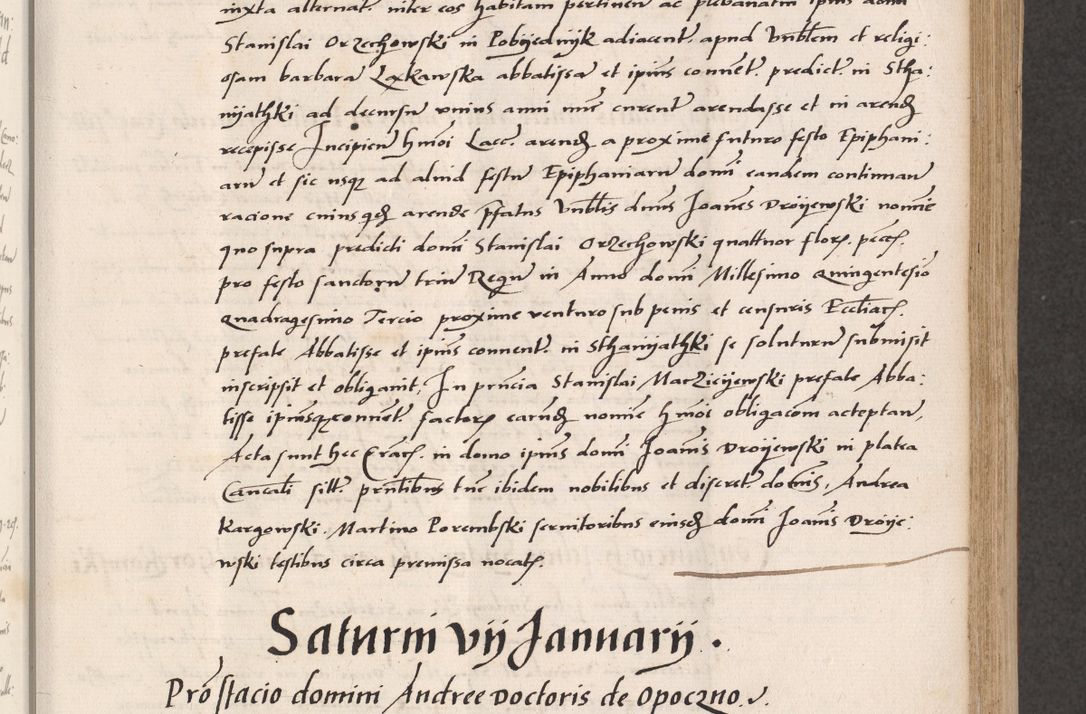 iuxta alternat. inter eos habitam pertinen ac plebanatui ipius domi
Stanislai Orzechowski in Pobyednyk adiacent. apud Vnblem et religi:
osam barbaram Lyxkawska abbatissam et ipius connet. predict. in Stha:
nyathki ad decursum vnius anni nunc curent arendasse et in arend
recepisse Incipien hmoi Lacc. arend a proxime futuro festo Epiphani:
arum et sic usque ad aliud festum Epiphaniarum domi eandem continuan
racione cuiusqd arende pfatus Vnblis dnus Joannes Droyewski nomine
quo supra predicti domi Stanislai Orzechowski quattuor flor. pecc.
pro festo sanctorum trium Regum in Anno domi Millesimo Quingentesio
Quadragesimo Tercio proxime venturo sub penis et censuris Eccliac.
prefate Abbatisse et ipius connent. in Sthanyathki se soluturum submisit
inscripsit et obligauit, In pnncia Stanislai Maczieyewski prefate Abba:
tisse ipiusq connet. factor earund nomine hmoi obligacom acceptan,
Acta sunt hec Crac. in domo ipius domi Joannis Droyewski in platea
Cancali sitt. pnntibus tunc ibidem nobilibus et discret. dominis, Andrea
Kargowski. Martino Porembski seruitoribus eiusd domi Joannis Droye:
wski testibus circa premissa uocat.
Saturni vij Januarij .
Prostacio domini Andree Doctoris de Opoczno.